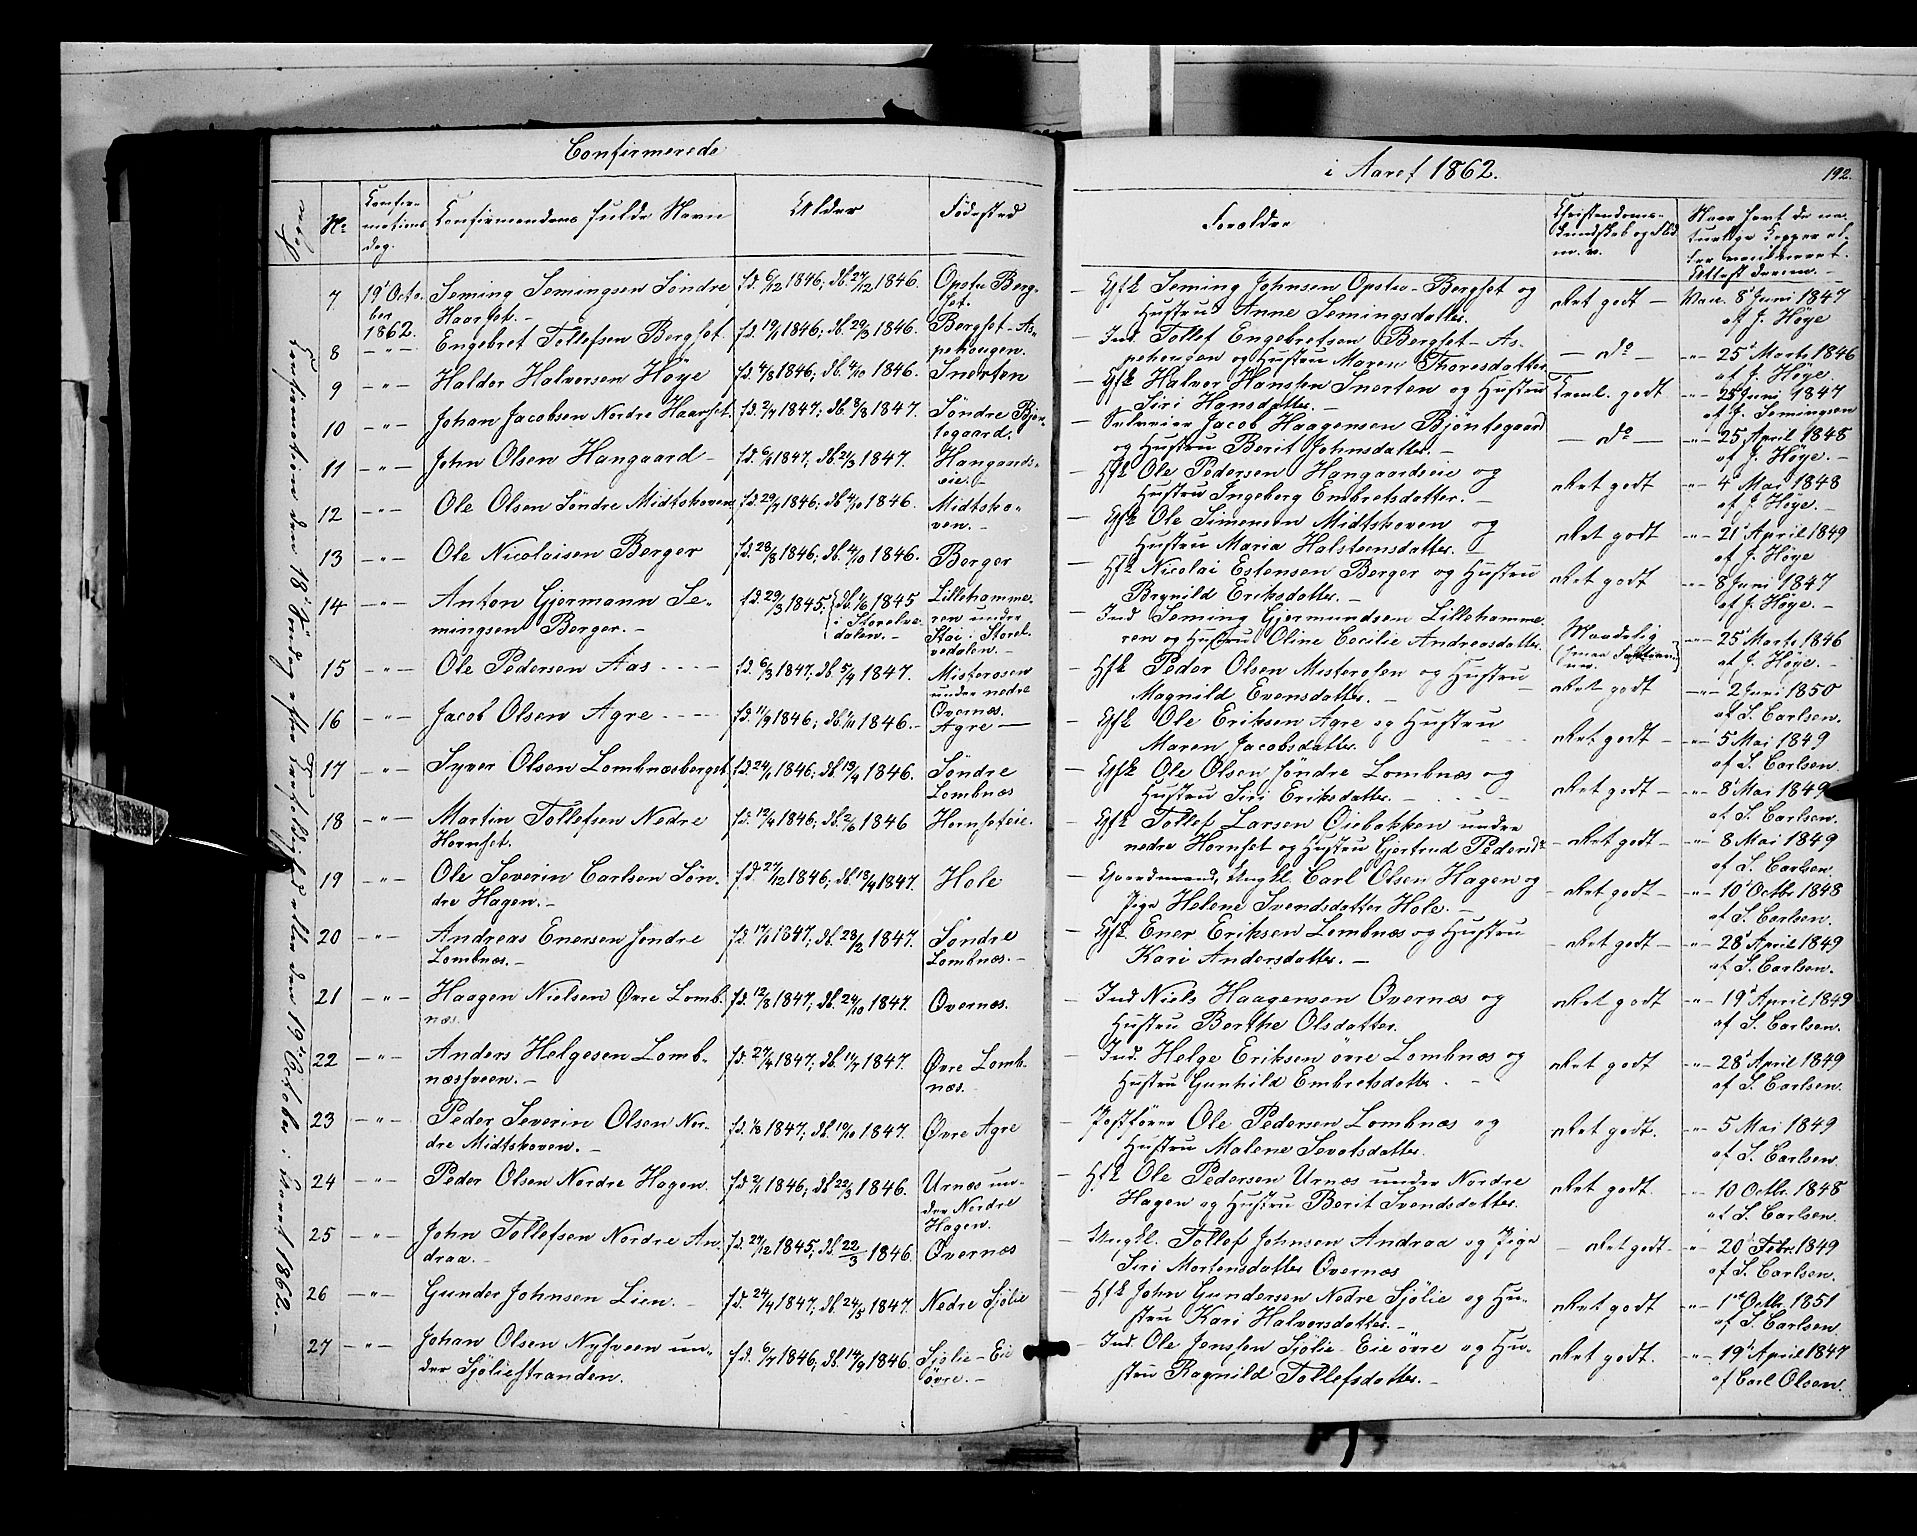 Confirmerede
i Aaret 1862.
192.
No
Confir-
mations
dag.
Confirmandens fulde Navn
Alder
Fødested
Forældre
Christendoms-
kundskab og Flid
m. v.
Naar havt de na-
turlige Kopper el-
ler vaccineret.
Attest derom. -
Confirmation den 18de Søndag efter Trefoldighed eller den 19de October i Aaret 1862. -
7 19' Octo-
ber
1862.
Seming Semingsen Søndre
Haarset. -
fd. 6/12 1846; db. 27/12 1846.
Opsta Berg-
set.
- Gfb Seming Johnsen Opsta-Bergset og
Hustru Anne Semingsdatter.
Meget godt -
Vac. 8' Juni 1847
af J. Høye
8 - " - Engebret Tollefsen Bergset.
fd. 19/1 1846; db. 29/3 1846.
Bergset-As-
pehaugen.
- Ind. Tollef Engebretsen Bergset-As-
pehaugen og Hustru Maren Thoresdatter
- do -
- " - 25' Marts 1846
af J. Høye.
9 - " - Haldor Halvorsen Høye
fd. 4/8 1846; db. 4/10 1846.
Snerten
- Gfb Halvor Hansen Snerten og Hustru
Siri Hansdatter. -
Teml. godt
- " - 25' Juni 1847
af J. Semingsen
10 - " - Johan Jacobsen Nordre Haarset.
fd. 2/7 1847; db. 8/8 1847.
Søndre Bjøn-
tegaard.
- Selveier Jacob Haagensen Bjøntegaard
og Hustru Berit Johnsdatter. -
- do -
- " - 25' April 1848
af J. Høye. -
11 - " - John Olsen Hangaard -
fd. 6/1 1847; db. 21/3 1847.
Hangaards-
eie. -
- Hfb Ole Pedersen Hangaardseie og
Hustru Ingeborg Embretsdatter. -
Meget godt
- " - 4' Mai 1848
af J. Høye. -
12 - " - Ole Olsen Søndre Midtskoven
fd. 29/7 1846; db. 4/10 1846.
Midtsko-
ven. -
- Gfb Ole Simensen Midtskoven og
Hustru Maria Halsteensdatter. -
Meget godt
- " - 21' April 1849
af J. Høye
13 - " - Ole Nicolaisen Berger
fd. 28/8 1846; db. 4/10 1846.
Berger
- Hfb Nicolai Estensen Berger og Hustru
Brynild Eriksdatter. -
Meget godt
- " - 8' Juni 1847
af J. Høye. -
14 - " - Anton Gjermann Se-
mingsen Berger. -
fd. 29/3 1845. db. 1/6 1845
i Storelve-
dalen. -
Lillehamme-
ren under
Stai i Storel-
vedalen. -
- Ind Seming Gjermundsen Lillehamme-
ren og Hustru Oline Cecilie Andreasdatter.
Maadelig
- " - 25' Marts 1846
af J. Høye. -
15 - " - Ole Pedersen Aas - - - -
fd. 6/3 1847; db. 5/4 1847.
Misterosen
under nedre
Øvernæs.
- Hfb Peder Olsen Misterosen og Hustru
Magnild Evensdatter. -
Meget godt
- " - 2' Juni 1850
af S. Carlsen.
16 - " - Jacob Olsen Agre - - - -
fd. 11/9 1846; db. 1/11 1846. -
Agre -
- Gfb Ole Eriksen Agre og Hustru
Maren Jacobsdatter.
Meget godt -
- " - 5 Mai 1849
af S. Carlsen.
17 - " - Syver Olsen Lombnæsberget,
fd. 24/1 1846; db. 19/4 1846.
Søndre
Lombnæs
- Gfb Ole Olsen Søndre Lombnæs og
Hustru Siri Eriksdatter. -
Meget godt -
- " - 8' Mai 1849
af S. Carlsen.
18 - " - Martin Tollefsen Nedre
Hornset.
fd. 12/4 1846; db. 2/6 1846
Hornseteie.
- Gfb Tollef Larsen Oiebakken under
nedre Hornset og Hustru Gjertrud Pedersdr
- Meget godt -
- " - 8 Mai 1849
af S. Carlsen.
19 - " - Ole Severin Carlsen Søn-
dre Hagen. -
fd. 27/12 1846; db. 18/4 1847.
Hole
- Gaardmand, Ungkl. Carl Olsen Hagen og
Pige Helene Svendsdatter Hole. -
- Meget godt -
- " - 10' Octbr 1848
af S. Carlsen.
20 - " - Andreas Enersen Søndre
Lombnæs. -
fd. 17/1 1847; db. 28/2 1847.
Søndre
Lombnæs. -
- Gfb. Ener Eriksen Lombnæs og Hustru
Kari Andersdatter. -
- Meget godt -
- " - 28' April 1849
af S. Carlsen.
21 - " - Haagen Nielsen Øvre Lomb-
næs.
fd. 12/8 1847; db. 24/10 1847.
Øvernæs.
- Ind Niels Haagensen Øvernæs og
Hustru Berthe Olsdatter.
Meget godt
- " - 19' April 1849
af S. Carlsen.
22 - " - Anders Helgesen Lomb-
næssveen. -
fd. 27/4 1847; db. 11/7 1847.
Øvre Lomb-
næs.
- Ind. Helge Eriksen øvre Lombnæs og
Hustru Gunhild Embretsdatter.
Meget godt
- " - 28' April 1849
af S. Carlsen.
23 - " - Peder Severin Olsen Nor-
dre Midtskoven. -
fd. 1/8 1847; db. 10/10 1847.
Øvre Agre
- Postfører Ole Pedersen Lombnæs og
Hustru Malene Sevatsdatter.
Meget godt.
- " - 5 Mai 1849
af S. Carlsen.
24 - " - Peder Olsen Nordre Hagen.
fd. 2/1 1846; db. 22/3 1846.
Urnæs un-
der Nordre
Hagen.
- Hfb Ole Pedersen Urnæs under Nordre
Hagen og Hustru Berit Svendsdatter.
Meget godt.
- " - 10 Octbr. 1848
af S. Carlsen.
25 - " - John Tollefsen Nordre An-
draa. -
fd. 27/12 1845; db. 22/3 1846.
Øvernæs
- Ungkl. Tollef Johnsen Andraa og Pige
Siri Mortensdatter Øvernæs
- Meget godt -
" 20' Febr. 1849
af S. Carlsen.
26 - " - Gunder Johnsen Lien. -
fd. 24/4 1847; db. 24/5 1847.
Nedre Sjølie
- Hfb John Gundersen Nedre Sjølie og Hu-
stru Kari Halvorsdatter. -
Meget godt
- " - 1ste Octbr. 1851
af S. Carlsen.
27 - " - Johan Olsen Nysveen un-
der Sjøliestranden.
fd. 6/7 1846; db. 14/9 1846.
Sjølie-Eie
øvre. -
- Ind. Ole Jonssen Sjølie-Eie øvre og Hu-
stru Ragnild Tollefsdatter. -
Meget godt.
- " - 19' April 1847
af Carl Olsen.